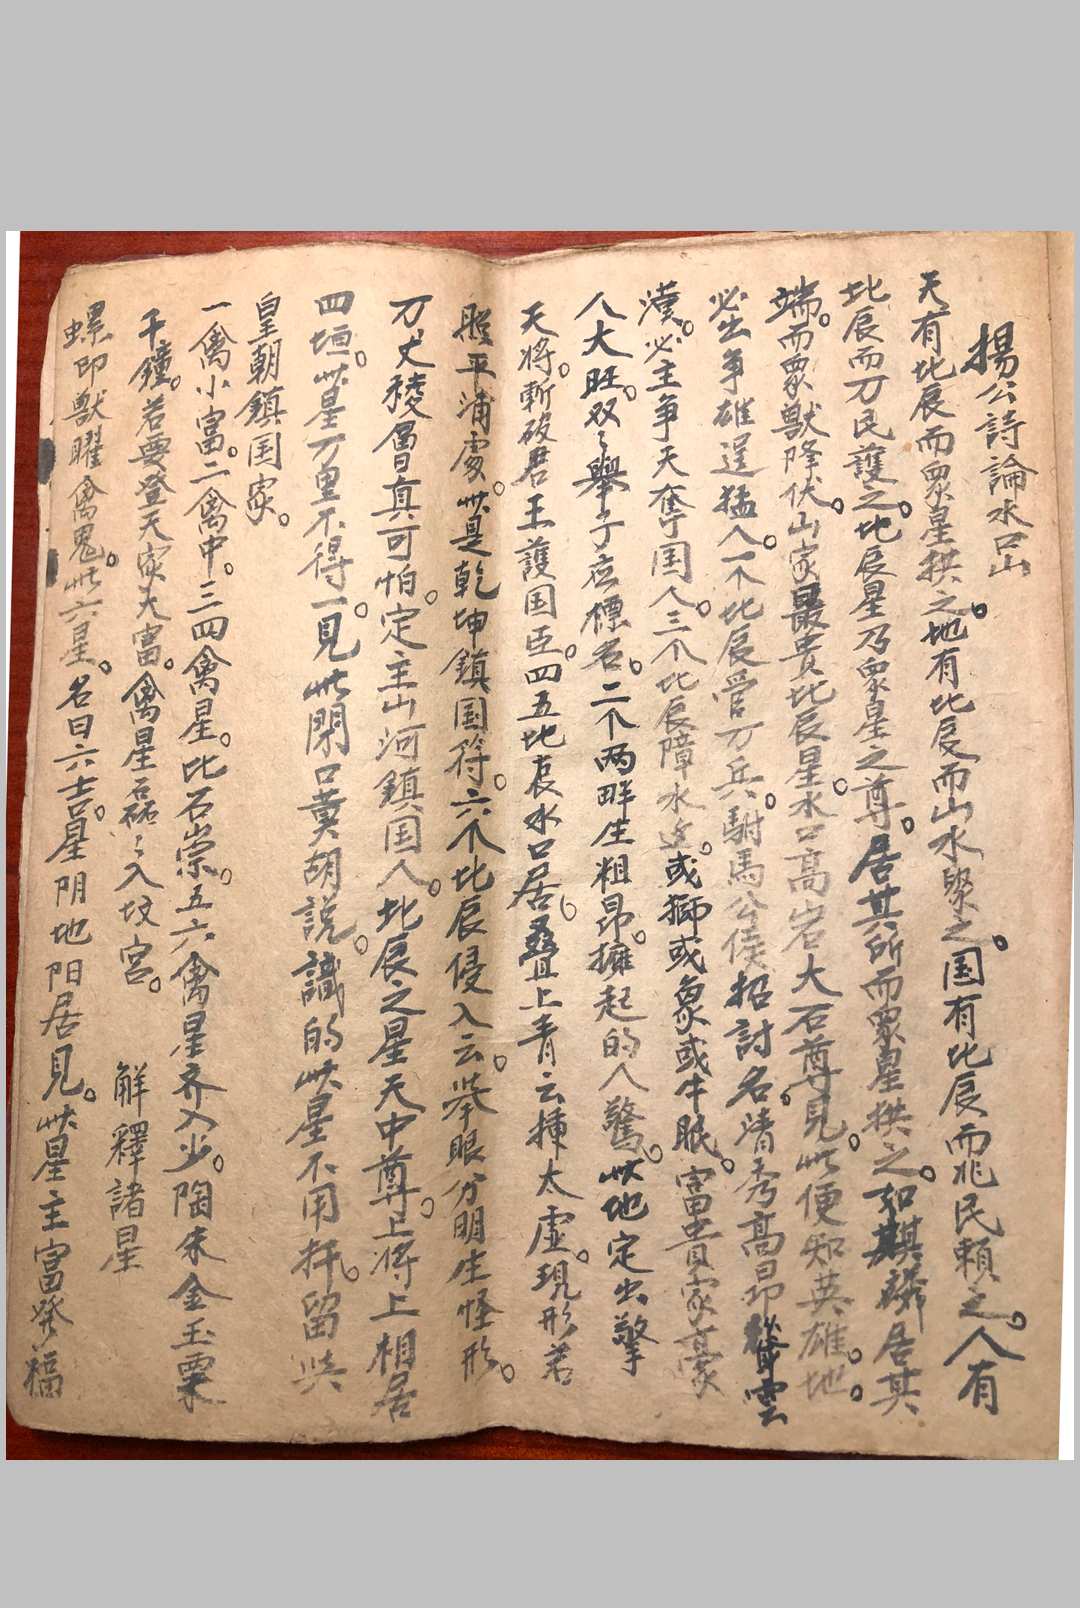 楊公詩論水口山
天有北辰而眾星拱之。地有北辰而山水聚之。国有北辰而兆民賴之。人有
北辰而万民護之。北辰星乃眾星之尊。居其所而眾星拱之。如麒麟居其
端。而眾獸降伏。山家最贵北辰星。水口高岩大石尊。見此便知英雄地。
必出争雄逞猛人。一个北辰管万兵。駙馬公侯招討名。清秀高昂聳雲
漢。必主争天奪国人。三个北辰障水边。或獅或象或牛眠。富貴家豪
人大旺。双々舉子应標名。二个两畔生粗昂。擁起的人驚。此地定出擎
天將。斬破君王護国臣。四五北辰水口居。叠上青云揷太虚。現形若
照平浦處。此是乾坤鎮国符。六个北辰侵入云。举眼分明生怪形。
万丈稜層真可怕。定主山河鎮国人。北辰之星天中尊。上將上相居
四垣。此星万里不得一。見此閉口莫胡説。識的此星不用扦。留與
皇朝鎮国家。
一禽小富。二禽中。三四禽星。比石崇。五六禽星齐入少。陶朱金玉粟
千鐘。若要登天家大富。禽星磊々入坟宫。 解釋諸星
螺印獸曜禽鬼。此六星。名曰六吉星。阴地阳居見。此星主富發福